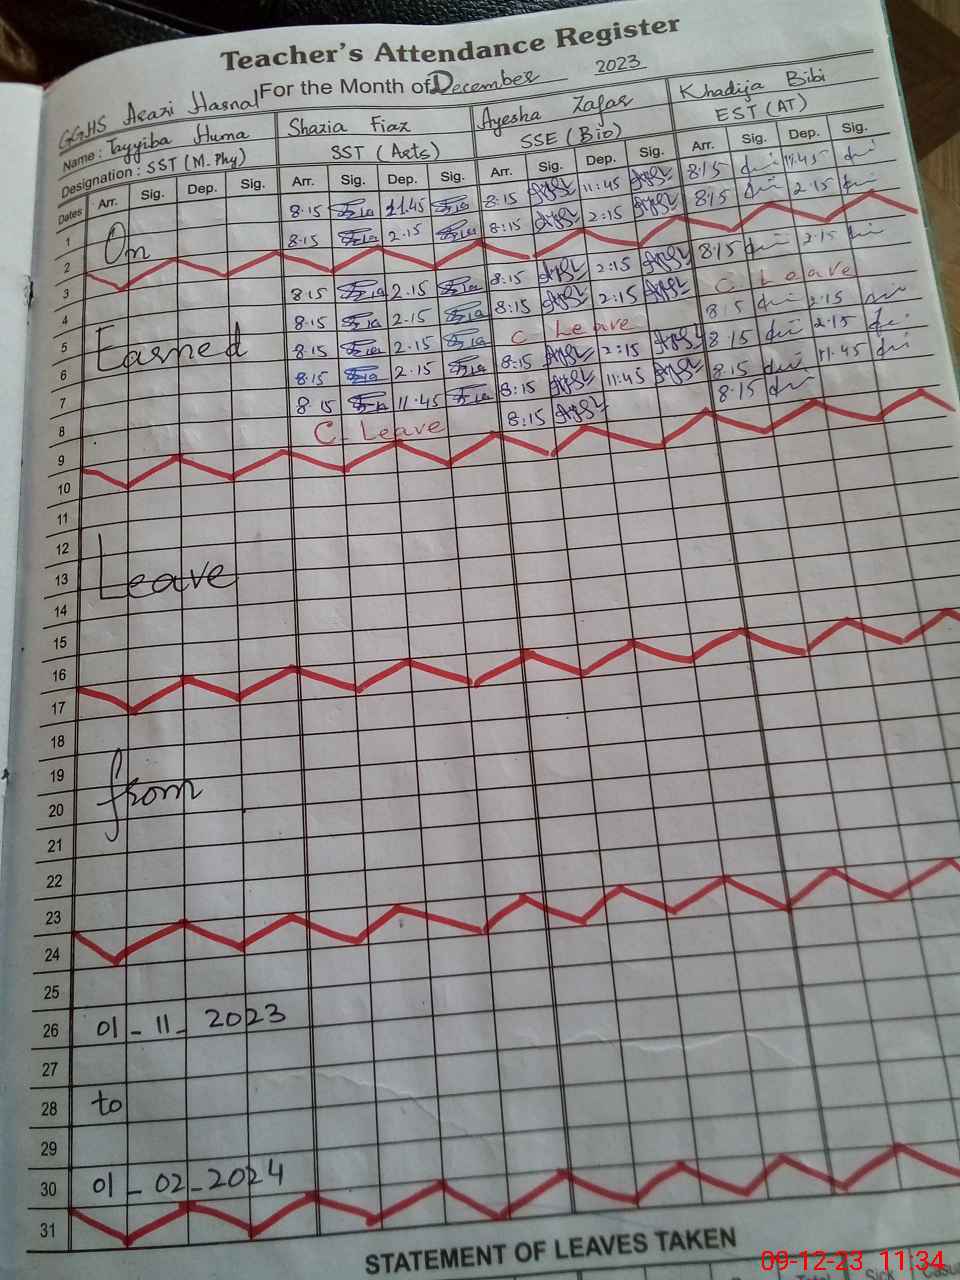 Teacher's Attendance Register
For the Month of December 2023
GGHS Arazi Hasnal
Name : Tayyiba Huma Shazia Fiaz Ayesha Zafar Khadija Bibi
Designation : SST (M. Phy) SST (Arts) SSE (Bio) EST (AT)
Dates Arr. Sig. Dep. Sig. Arr. Sig. Dep. Sig. Arr. Sig. Dep. Sig. Arr. Sig. Dep. Sig.
1 8.15 11.45 8:15 11:45 8:15 11:45
2 On 8.15 2.15 8:15 2:15 8:15 2.15
3
4 8.15 2.15 8:15 2:15 8:15 2.15
5 8.15 2.15 8:15 2:15 C. Leave
6 Earned 8.15 2.15 C. Leave 8:15 2.15
7 8.15 2.15 8:15 2:15 8:15 2.15
8 8.15 11.45 8:15 11:45 8.15 11.45
9 C. Leave 8:15 8:15
10
11
12
13 Leave
14
15
16
17
18
19
20 from
21
22
23
24
25
26 01-11-2023
27
28 to
29
30 01-02-2024
31
STATEMENT OF LEAVES TAKEN
09-12-23 11:34